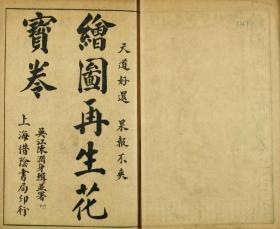 天道好還　果報不爽
繪圖再生花
寶卷
吳江陳潤身輯並署
上海惜陰書局印行